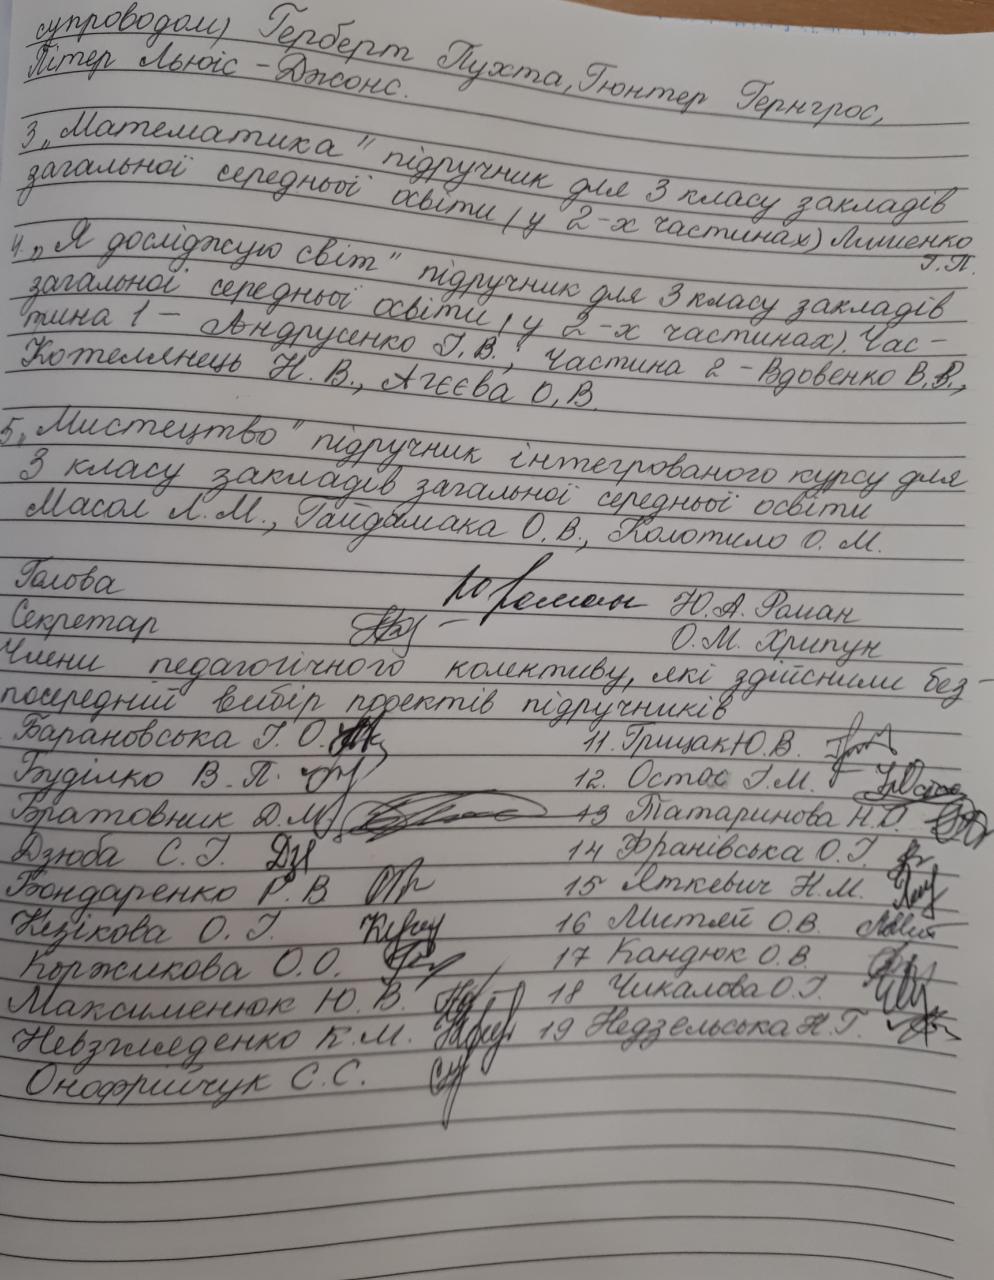 супроводом) Герберт Пухта, Гюнтер Гернгрос,
Пітер Льюіс - Джонс.
3 „Математика" підручник для 3 класу закладів
загальної середньої освіти (у 2-х частинах) Лишенко
Г.П.
4. „Я досліджую світ" підручник для 3 класу закладів
загальної середньої освіти (у 2-х частинах). Час-
тина 1 - Андрусенко І.В.; Частина 2 - Вдовенко В.В.,
Котелянець Н.В., Агєєва О.В.
5 „Мистецтво" підручник інтегрованого курсу для
3 класу закладів загальної середньої освіти
Масол Л.М., Гайдамака О.В., Колотило О.М.
Голова Ю.А. Роман
Секретар О.М. Хрипун
Члени педагогічного колективу, які здійснили без-
посередній вибір проєктів підручників
Барановська І.О. 11. Грицак Ю.В.
Буділко В.П. 12. Остас І.М.
Братовник Д.М. 13 Татаринова Н.О.
Дзюба С.І. 14 Франівська О.І.
Бондаренко Р.В 15 Яткевич Н.М.
Кізікова О.І. 16 Митляй О.В.
Коржикова О.О. 17 Кандюк О.В
Максименюк Ю.В. 18 Чикалова О.І.
Невзгляденко К.М. 19 Недзельська Н.Г.
Онофрийчук С.С.